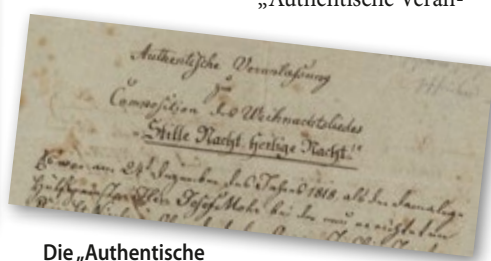 „Authentische Veran-
Authentische Veranlassung
zur
Composition des Weihnachtsliedes
„Stille Nacht, Heilige Nacht."
Es war am 24t Dezember des Jahres 1818, als der damalige
Hülfspriester Herr Josef Mohr bei der neu errichteten
Die „Authentische